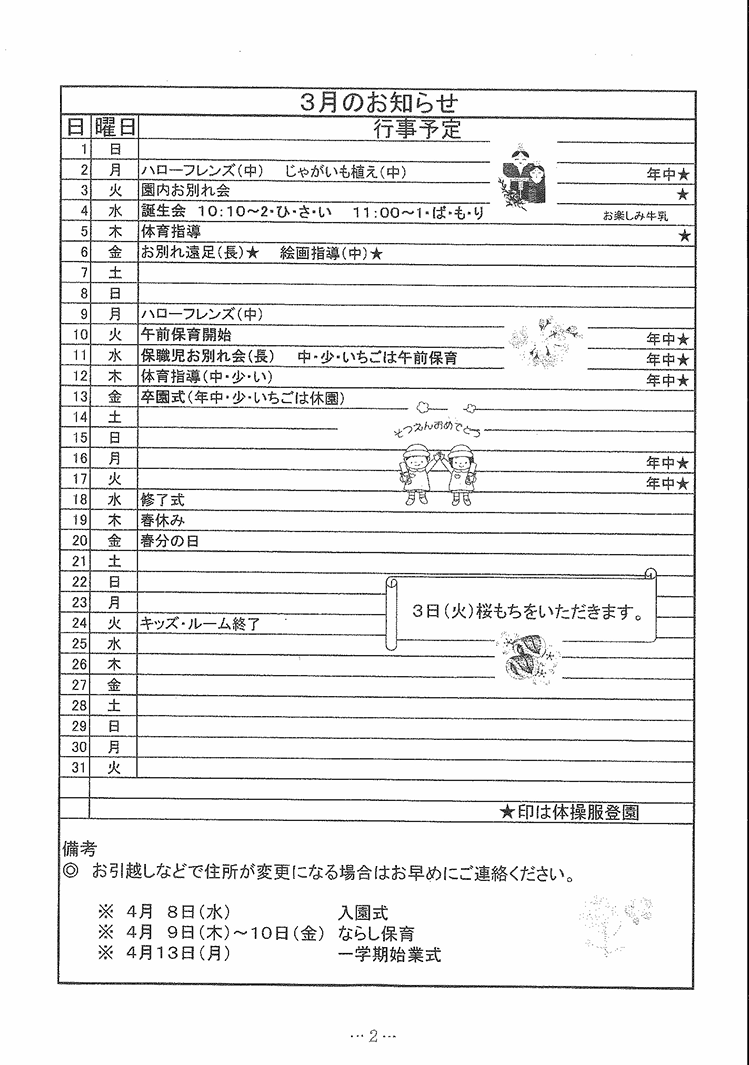 3月のお知らせ
日 曜日 行事予定
1 日
2 月 ハローフレンズ(中) じゃがいも植え(中) 年中★
3 火 園内お別れ会 ★
4 水 誕生会 10:10~2・ひ・さ・い 11:00~1・ば・も・り お楽しみ牛乳
5 木 体育指導 ★
6 金 お別れ遠足(長)★ 絵画指導(中)★
7 土
8 日
9 月 ハローフレンズ(中)
10 火 午前保育開始 年中★
11 水 保職児お別れ会(長) 中・少・いちごは午前保育 年中★
12 木 体育指導(中・少・い) 年中★
13 金 卒園式(年中・少・いちごは休園)
14 土
そつえんおめでとう
15 日
16 月 年中★
17 火 年中★
18 水 修了式
19 木 春休み
20 金 春分の日
21 土
22 日
23 月
3日(火)桜もちをいただきます。
24 火 キッズ・ルーム終了
25 水
26 木
27 金
28 土
29 日
30 月
31 火
★印は体操服登園
備考
◎ お引越しなどで住所が変更になる場合はお早めにご連絡ください。
※ 4月 8日(水) 入園式
※ 4月 9日(木)~10日(金) ならし保育
※ 4月13日(月) 一学期始業式
…2…